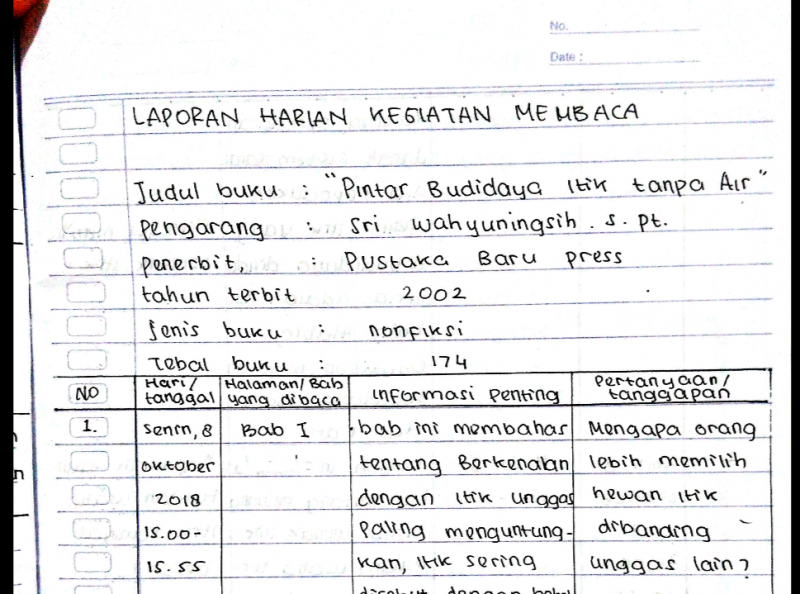 No.
Date :
LAPORAN HARIAN KEGIATAN MEMBACA
Judul buku : "Pintar Budidaya Itik tanpa Air"
Pengarang : Sri Wahyuningsih . S. Pt.
Penerbit, : Pustaka Baru press
tahun terbit 2002
Jenis buku : nonfiksi
Tebal buku : 174
NO Hari/ tanggal Halaman/Bab yang dibaca Informasi Penting Pertanyaan/ tanggapan
1. Senin, 8 Bab I bab ini membahas Mengapa orang
oktober tentang Berkenalan lebih memilih
2018 dengan Itik unggas hewan itik
15.00- Paling menguntung- dibanding -
15.55 kan, Itik sering unggas lain?
disebut dengan